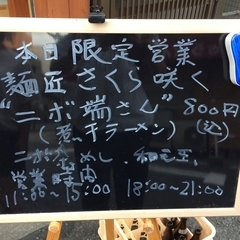 本日限定営業
麺匠さくら咲く
"ニボ端さん" 800円
(煮干ラーメン) (込)
めし、和え玉、
営業時間
11:00～15:00 18:00～21:00